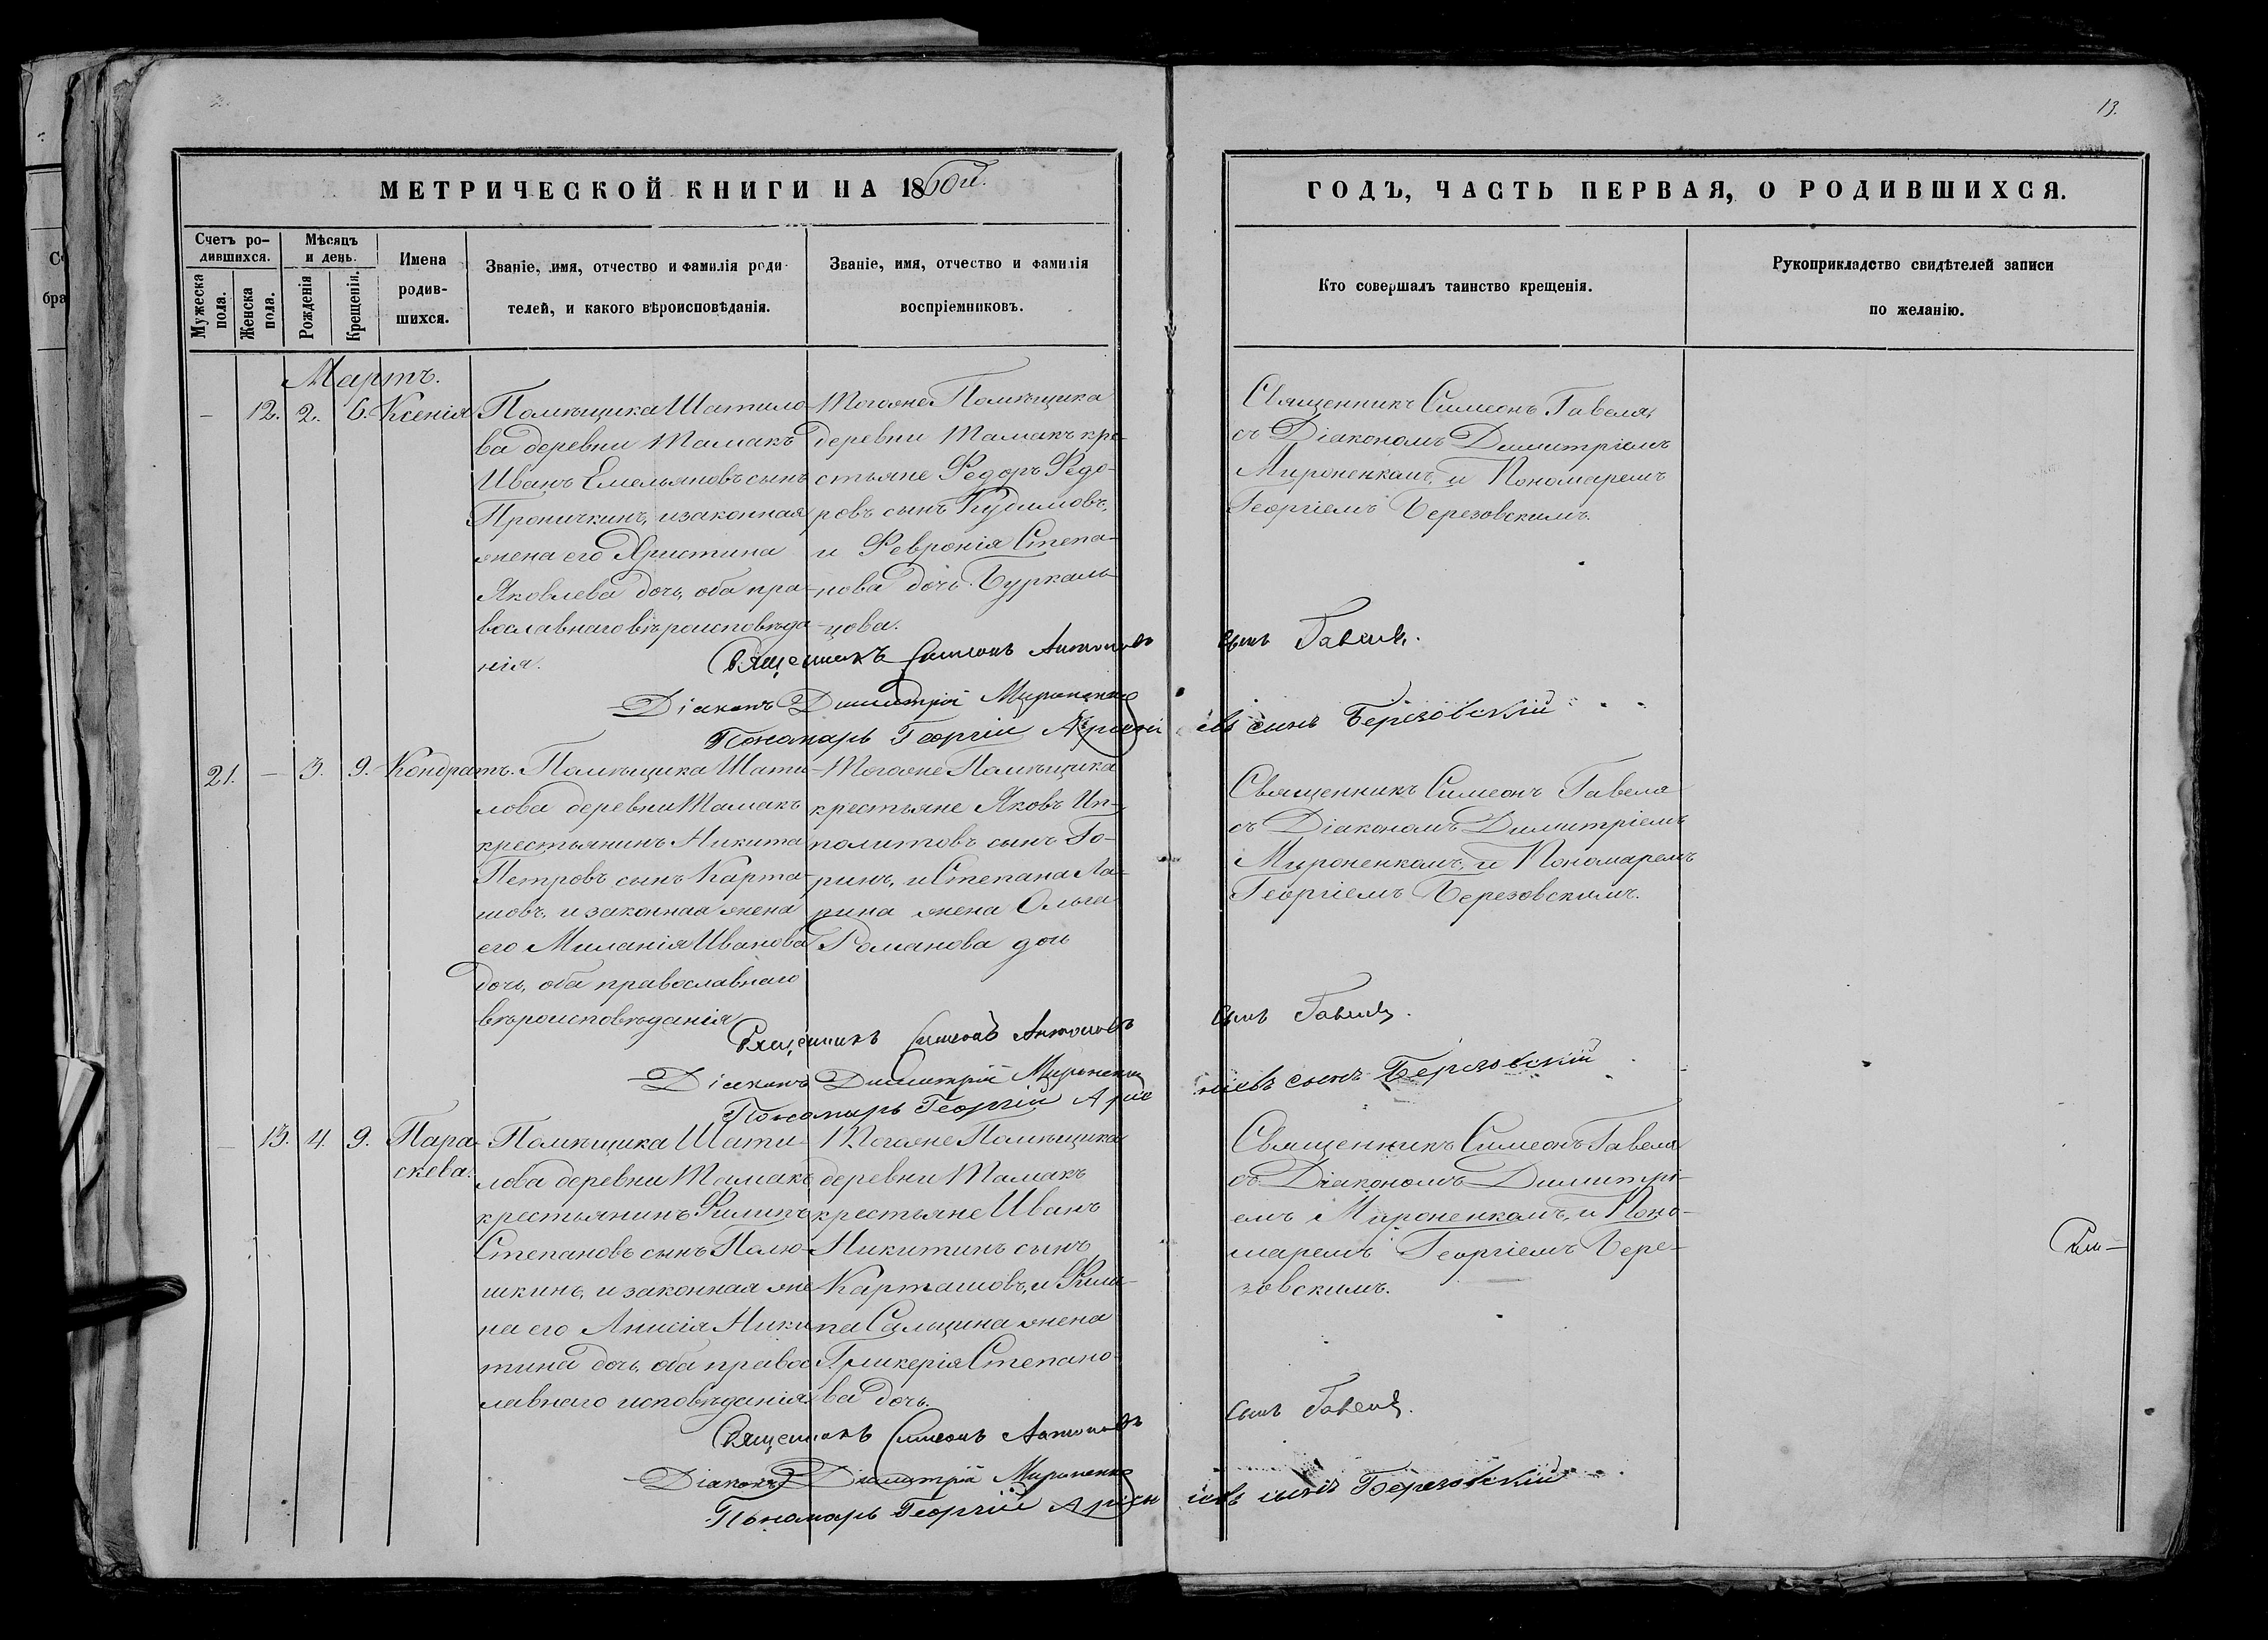 13.
МЕТРИЧЕСКОЙ КНИГИ НА 1860й.
ГОДЪ, ЧАСТЬ ПЕРВАЯ, О РОДИВШИХСЯ.
Счетъ ро-
дившихся.
Мужеска пола.
Женска пола.
Мѣсяцъ
и день.
Рожденія
Крещенія.
Имена
родив-
шихся.
Званіе, имя, отчество и фамилія роди-
телей, и какого вѣроисповѣданія.
Званіе, имя, отчество и фамилія
воспріемниковъ.
Кто совершалъ таинство крещенія.
Рукоприкладство свидѣтелей записи
по желанію.
Мартъ.
– 12. 2. 6. Ксенія
Помѣщика Шатило-
ва деревни Тамакъ
Иванъ Емельяновъ сынъ
Проничкинъ, и законная
жена его Христина
Яковлева дочь, оба пра-
вославнаго вѣроисповѣда-
нія.
Тогоже Помѣщика
деревни Тамакъ кре-
стьяне Федоръ Федо-
ровъ сынъ Кудимовъ,
и Февронія Степа-
нова дочь Буркаль-
цова.
Священникъ Симеонъ Гавеля,
съ Діакономъ Димитріемъ
Мироненкомъ, и Пономаремъ
Георгіемъ Березовскимъ.
Священникъ Симеонъ Антоновъ сынъ Гавеля.
Діаконъ Димитрій Мироненко
Пономарь Георгій Арсеніевъ сынъ Березовскій
21. – 3. 9. Кондратъ.
Помѣщика Шати-
лова деревни Тамакъ
крестьянинъ Никита
Петровъ сынъ Карта-
шовъ, и законная жена
его Миланія Иванова
дочь, оба православнаго
вѣроисповѣданія
Тогоже Помѣщика
крестьяне Яковъ Ип-
политовъ сынъ Го-
ринъ, и Степана Ла-
рина жена Ольга
Романова дочь
Священникъ Симеонъ Гавеля
съ Діакономъ Димитріемъ
Мироненкомъ, и Пономаремъ
Георгіемъ Березовскимъ.
Священникъ Симеонъ Антоновъ сынъ Гавеля.
Діаконъ Димитрій Мироненко
Пономарь Георгій Арсеніевъ сынъ Березовскій
– 13. 4. 9. Пара-
скева.
Помѣщика Шати-
лова деревни Тамакъ
крестьянинъ Филипъ
Степановъ сынъ Полю-
шкинъ, и законная же-
на его Анисія Ники-
тина дочь, оба правос-
лавнаго исповѣданія
Тогоже Помѣщика
деревни Тамакъ
крестьяне Иванъ
Никитинъ сынъ
Карташовъ, и Фили-
па Сальцина жена
Гликерія Степано-
ва дочь.
Священникъ Симеонъ Гавеля
съ Діакономъ Димитрі-
емъ Мироненкомъ, и Поно-
маремъ Георгіемъ Бере-
зовскимъ.
Священникъ Симеонъ Антоновъ сынъ Гавеля.
Діаконъ Димитрій Мироненко
Пономарь Георгій Арсеніевъ сынъ Березовскій